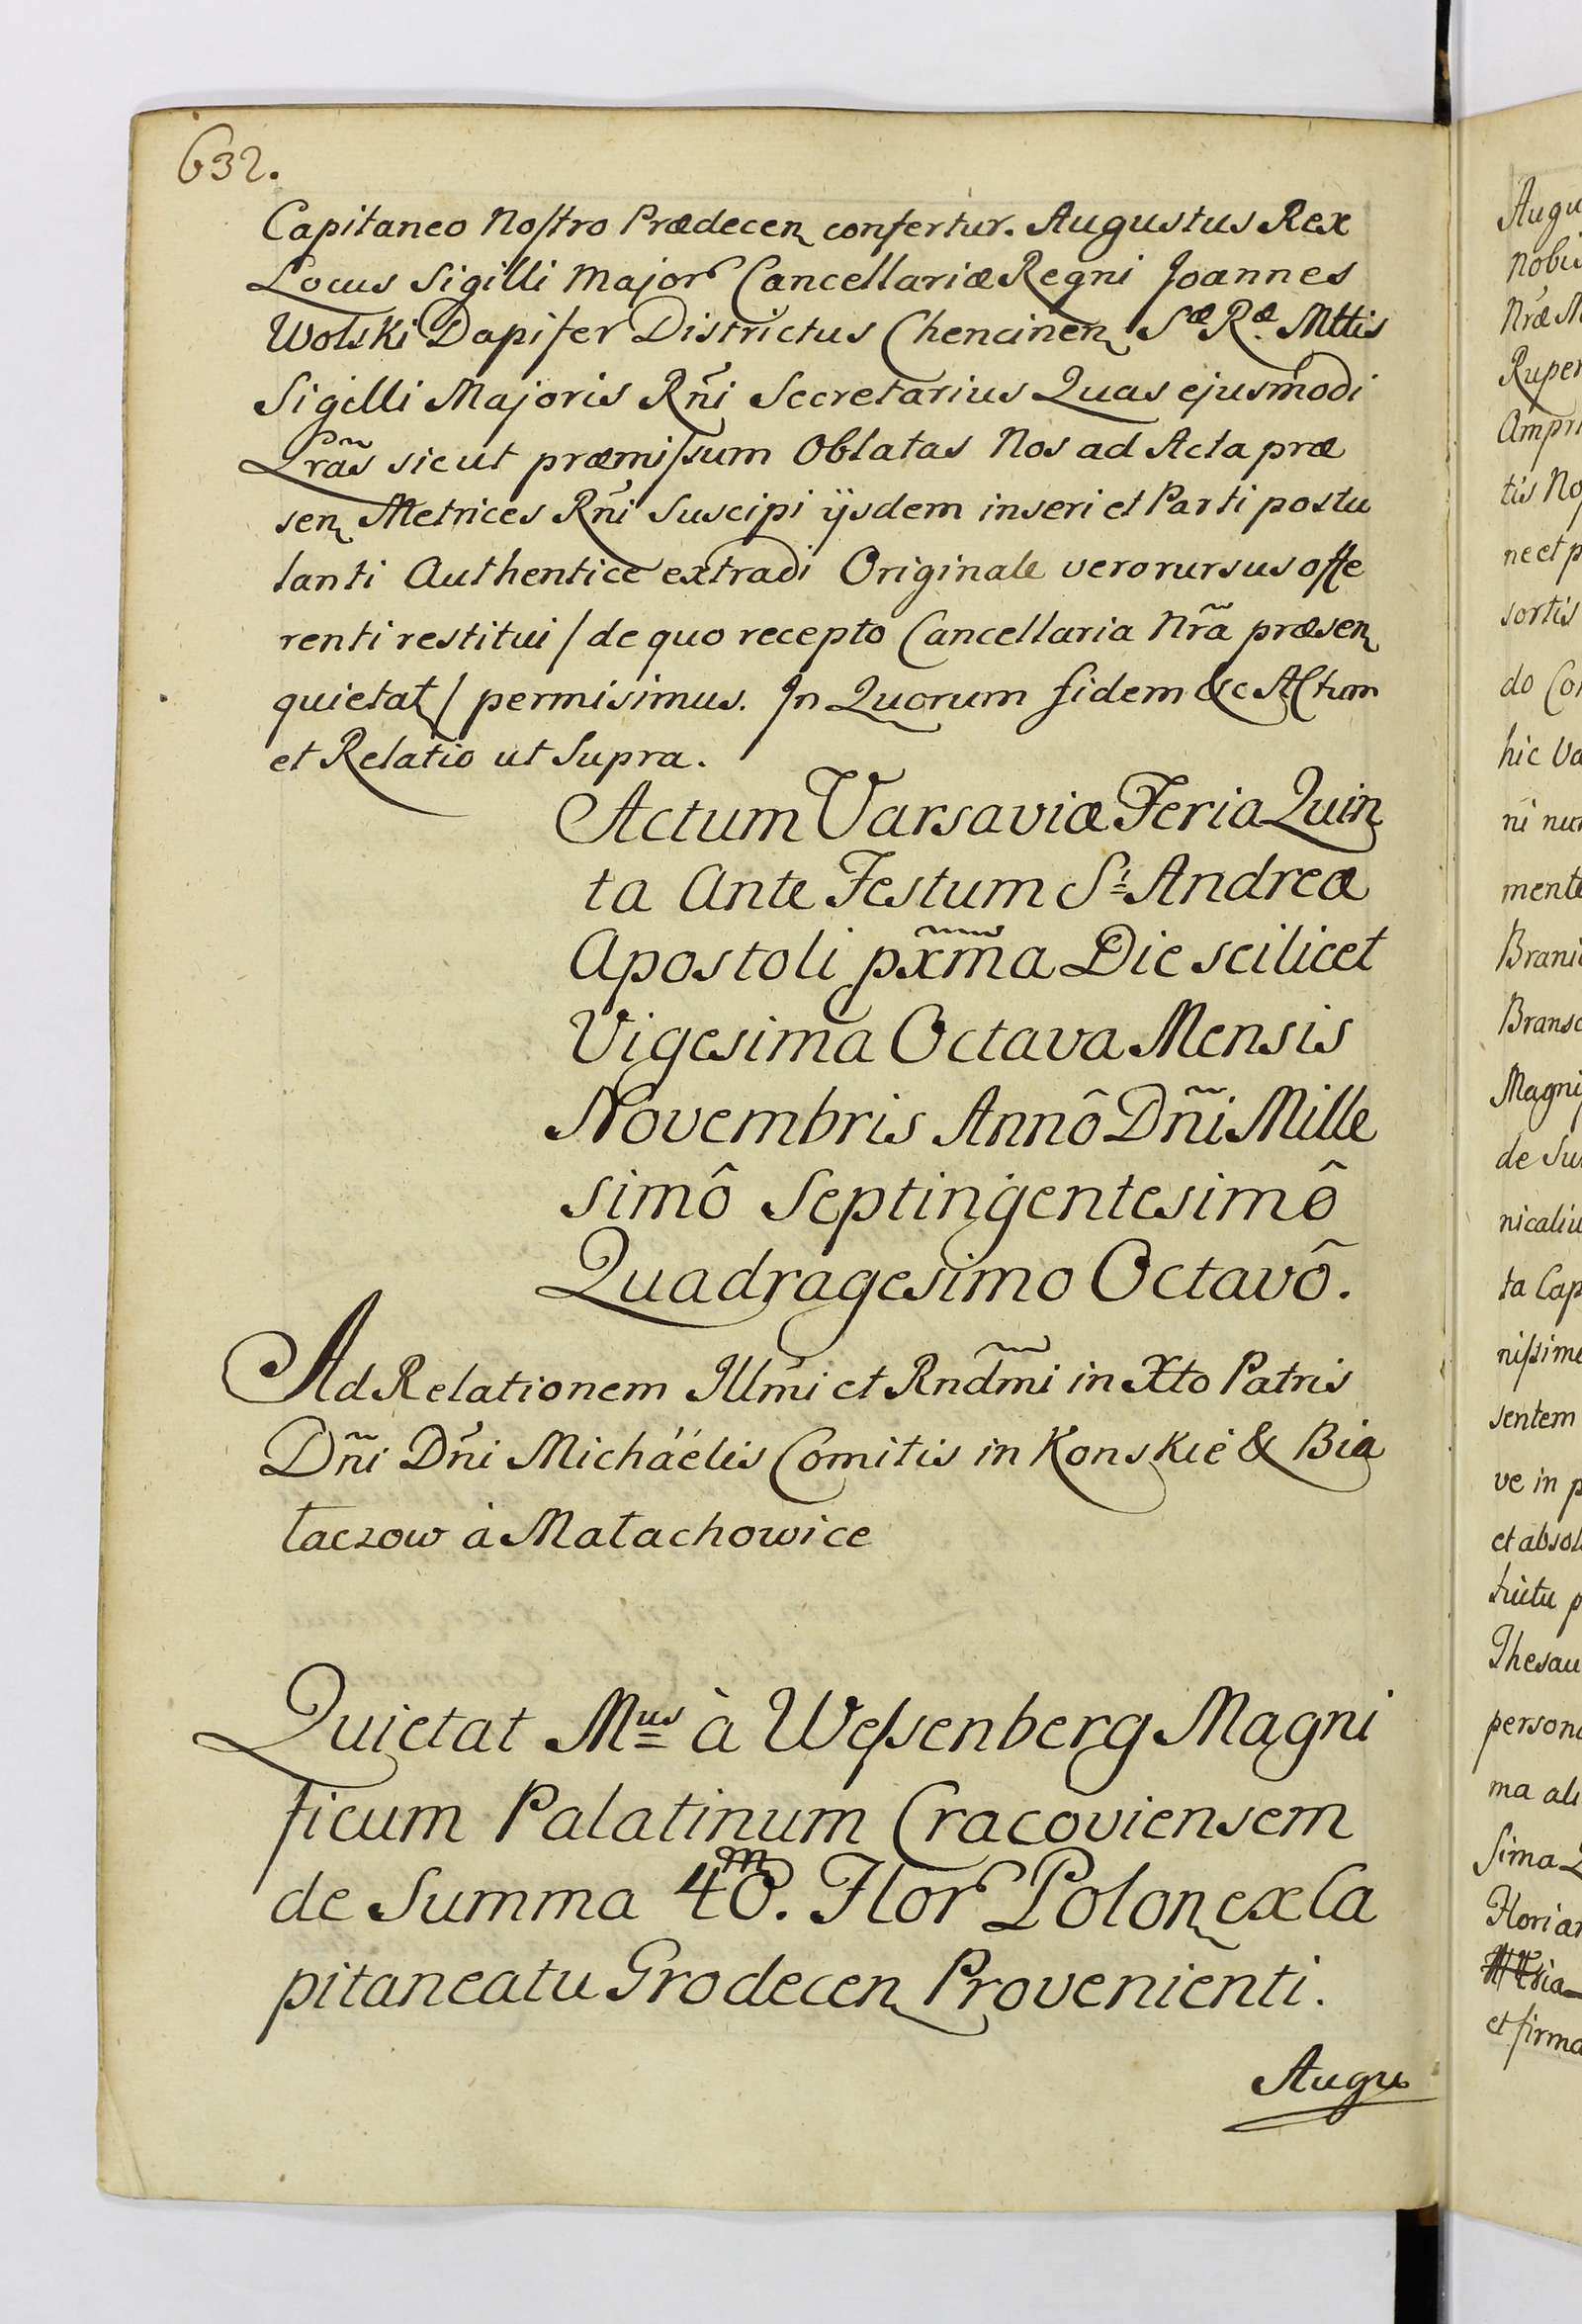 632.
Capitaneo Nostro Prædecen confertur. Augustus Rex
Locus Sigilli Major Cancellariæ Regni Joannes
Wolski Dapifer Districtus Chencinen Sæ Ræ Mttis
Sigilli Majoris Rñi Secretarius Quas ejusmodi
Lrãs sicut præmissum Oblatas Nos ad Acta præ
sen Metrices Rñi Suscipi ijsdem inseri et Parti postu
lanti Authentice extradi Originale vero rursus offe
renti restitui / de quo recepto Cancellaria Nrã præsen
quietat / permisimus. In Quorum fidem &c Actum
et Relatio ut Supra.
Actum Varsaviæ Feria Quin
ta Ante Festum Sti Andreæ
Apostoli pxm̃a Die scilicet
Vigesima Octava Mensis
Novembris Annô Dñi Mille
simô Septingentesimô
Quadragesimo Octavô.
Ad Relationem Illm̃i et Rndm̃i in Xto Patris
Dñi Dñi Micháélis Comitis in Konskié & Bia
łaczow à Małachowice
Quietat Mus à Wessenberg Magni
ficum Palatinum Cracoviensem
de Summa 40m. Flor Polon ex Ca
pitaneatu Grodecen Provenienti.
Augu
Augu
Nobis
Nræ M
Ruper
Ampri
tis No
ne et p
sortis
do Con
hic Va
ni nun
mente
Brani
Bransc
Magni
de Su
nicaliu
ta Cap
nissime
sentem
ve in p
et absol
fuctu p
Thesau
person
ma ali
Sima
Florian
et firma